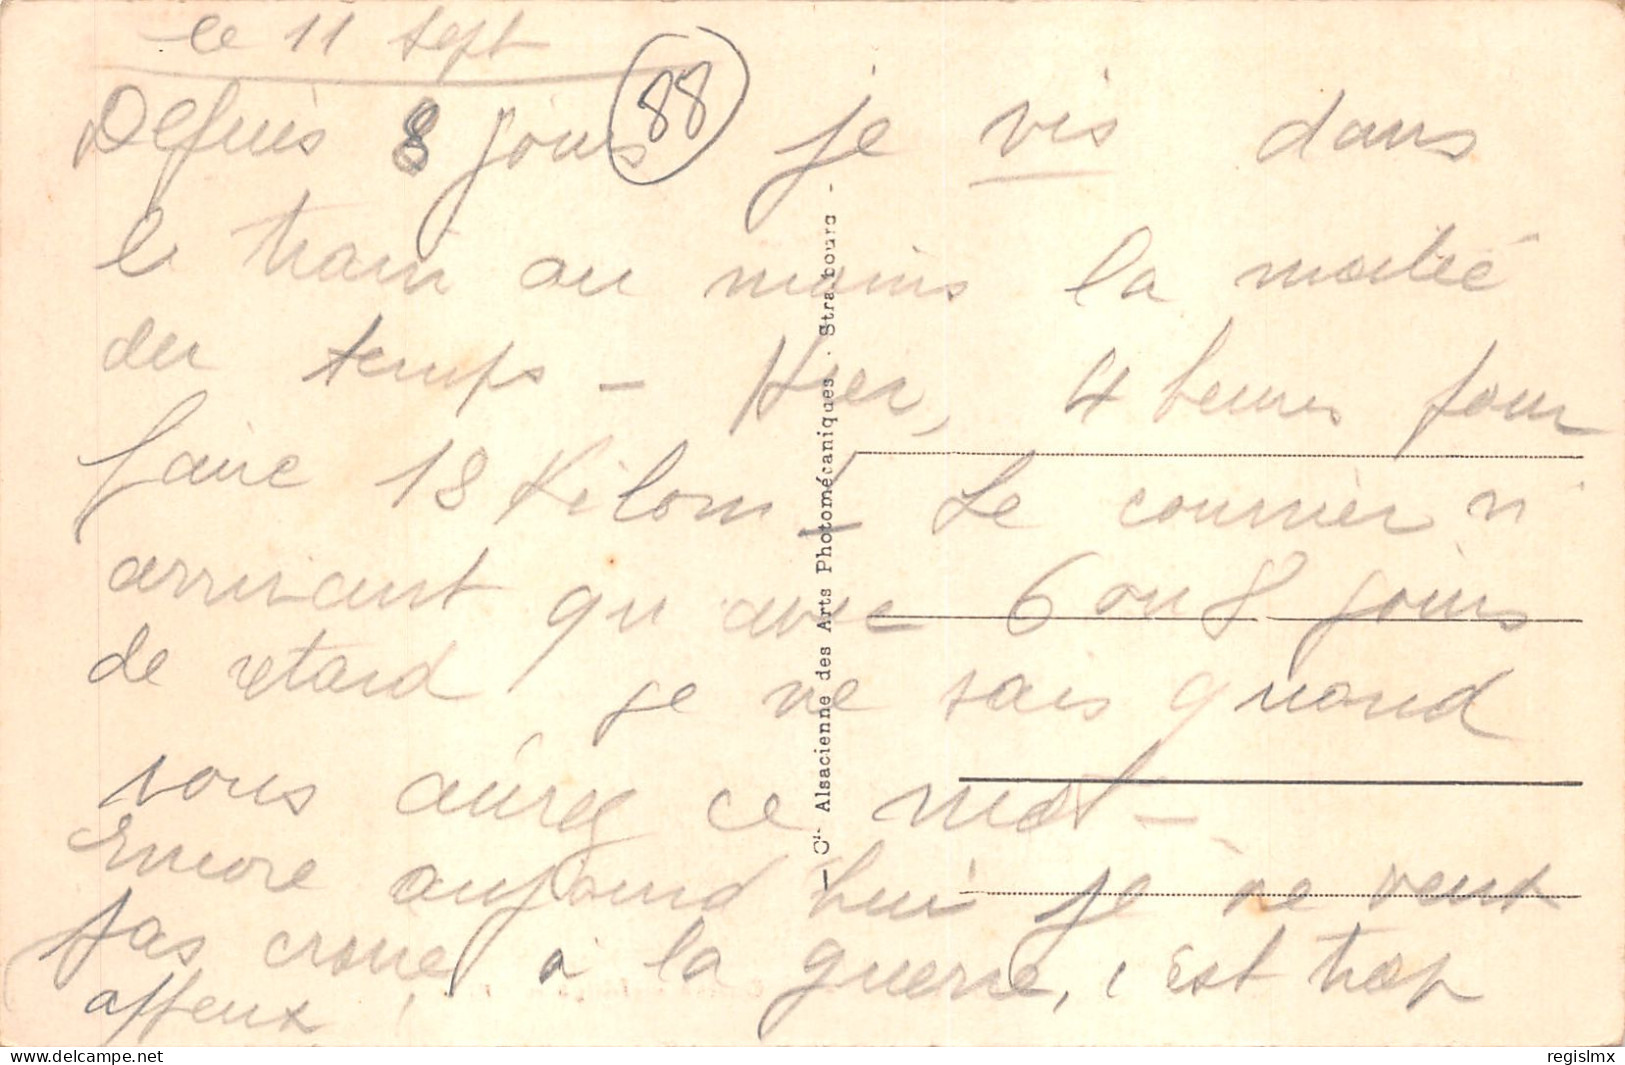 le 11 sept
88
Depuis 8 jours je vis dans
le train au moins la moitié
du temps - Hier, 4 heures pour
faire 18 Kilom - Le courrier n'
arrivant qu'avec 6 ou 8 jours
de retard je ne sais quand
vous aurez ce mot -
Encore aujourd'hui je ne veux
pas croire à la guerre, c'est trop
affreux !
- Cie Alsacienne des Arts Photomécaniques. Strasbourg -
www.delcampe.net
regislmx